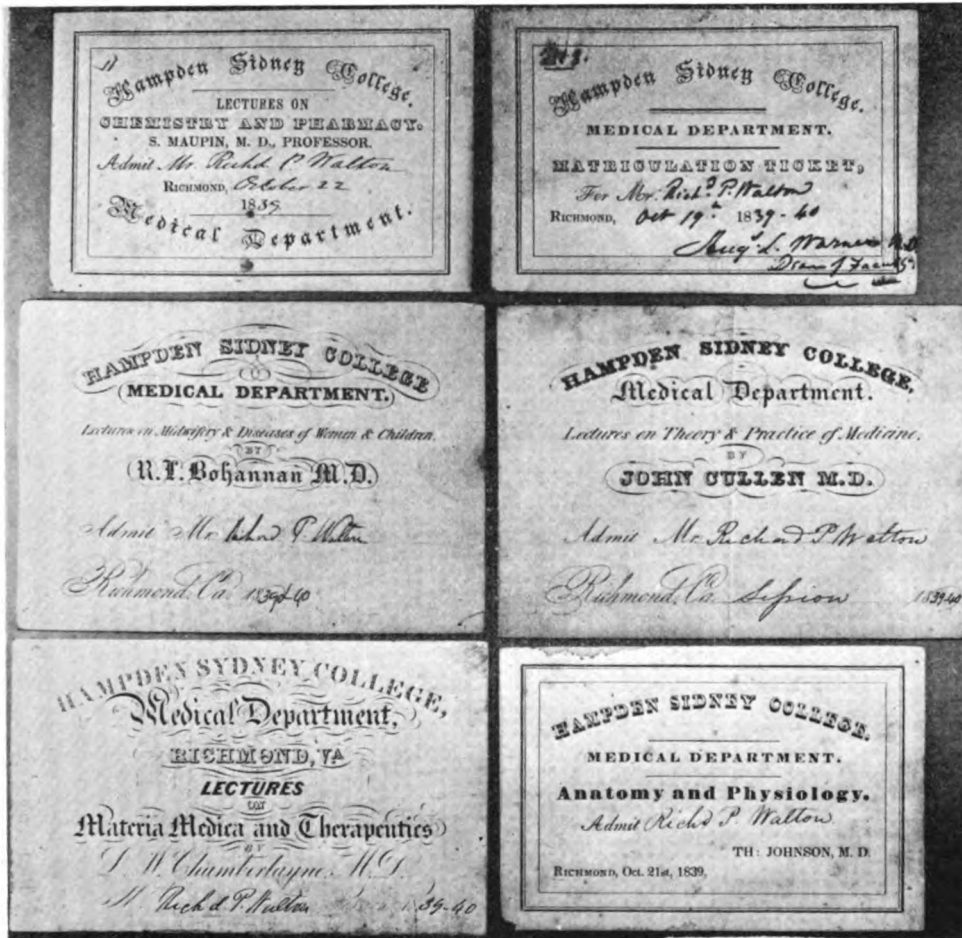 Hampden Sidney College.
LECTURES ON
CHEMISTRY AND PHARMACY.
S. MAUPIN, M. D., PROFESSOR.
Admit Mr. Richd P Walton
RICHMOND, October 22
1839
Medical Department.
Hampden Sidney College.
MEDICAL DEPARTMENT.
MATRICULATION TICKET,
For Mr. Richd. P. Walton
RICHMOND, Oct 19th 1839-40
Augt L. Warner M.D
Dean of Faculty
HAMPDEN SIDNEY COLLEGE
MEDICAL DEPARTMENT.
Lectures on Midwifery & Diseases of Women & Children.
BY
R. L. Bohannan M.D.
Admit Mr. Richard P. Walton
Richmond, Va. 1839 40
HAMPDEN SIDNEY COLLEGE,
Medical Department.
Lectures on Theory & Practice of Medicine.
BY
JOHN CULLEN M.D.
Admit Mr. Richard P Walton
Richmond, Va. Session 1839-40
HAMPDEN SYDNEY COLLEGE,
Medical Department,
RICHMOND, VA
LECTURES
ON
Materia Medica and Therapeutics
BY
L W. Chamberlayne M.D.
M. Richd. P. Walton 39-40
HAMPDEN SIDNEY COLLEGE.
MEDICAL DEPARTMENT.
Anatomy and Physiology.
Admit Richd P Walton
TH: JOHNSON, M. D.
RICHMOND, Oct. 21st, 1839.